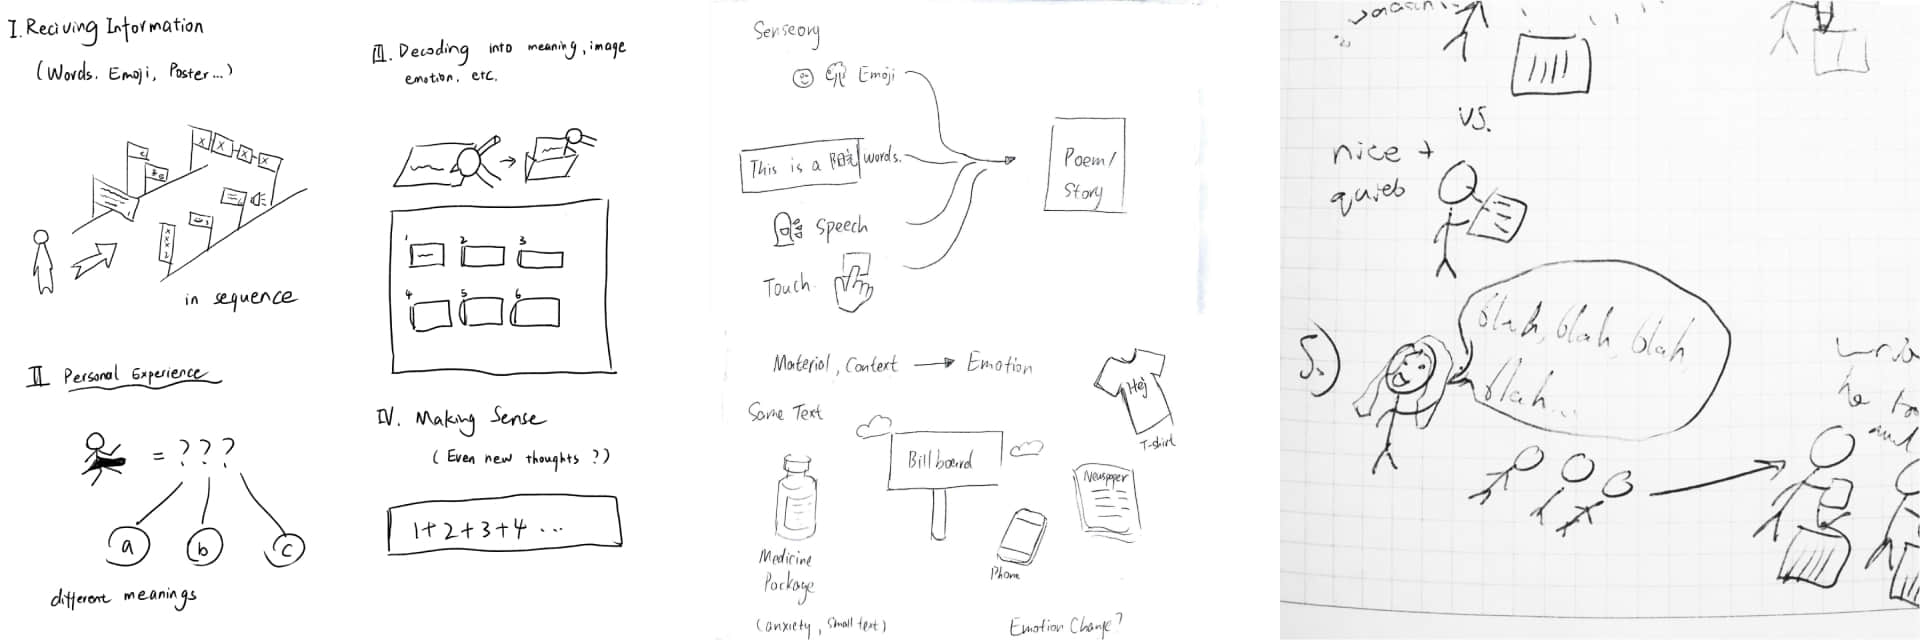 I. Reciving Information
(Words. Emoji, Poster...)
in sequence
II Personal Experience
= ? ? ?
a b c
different meanings
III. Decoding into meaning, image
emotion, etc.
1 2 3
4 5 6
IV. Making Sense
(Even new thoughts ?)
1+2+3+4 ...
Senseory
Emoji
This is a words.
Speech
Touch
Poem/
Story
Material, Context → Emotion
Same Text
Billboard
Hej
T-shirt
Newspaper
Phone
Medicine
Package
(anxiety, small text)
Emotion Change?
vs.
nice +
5.)
blah, blah, blah
blah...